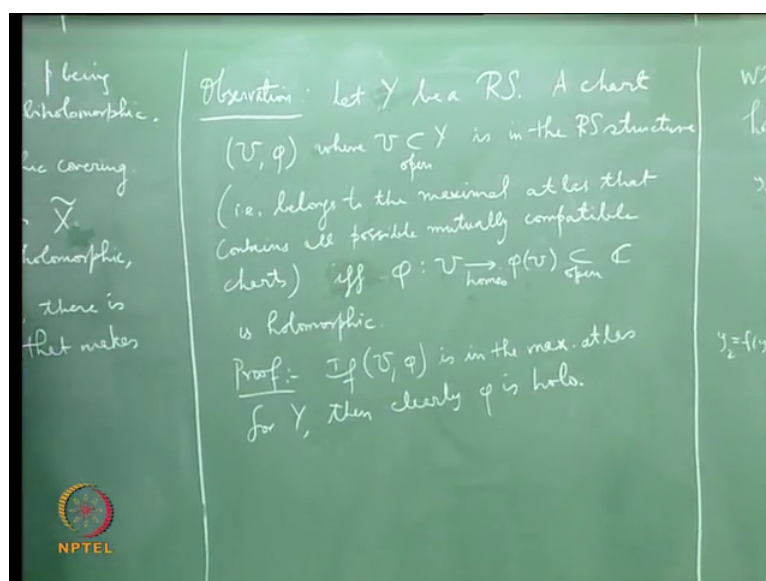 p being
biholomorphic.
covering.
X̃
holomorphic,
there is
that makes
Observation: Let Y be a RS. A chart
(U, φ) where U ⊂ Y is in the RS structure
open
(i.e. belongs to the maximal atlas that
contains all possible mutually compatible
charts) iff φ : U → φ(U) ⊂ ℂ
homeo open
is holomorphic.
Proof:- If (U, φ) is in the max. atlas
for Y, then clearly φ is holo.
y₂ = f(y
NPTEL